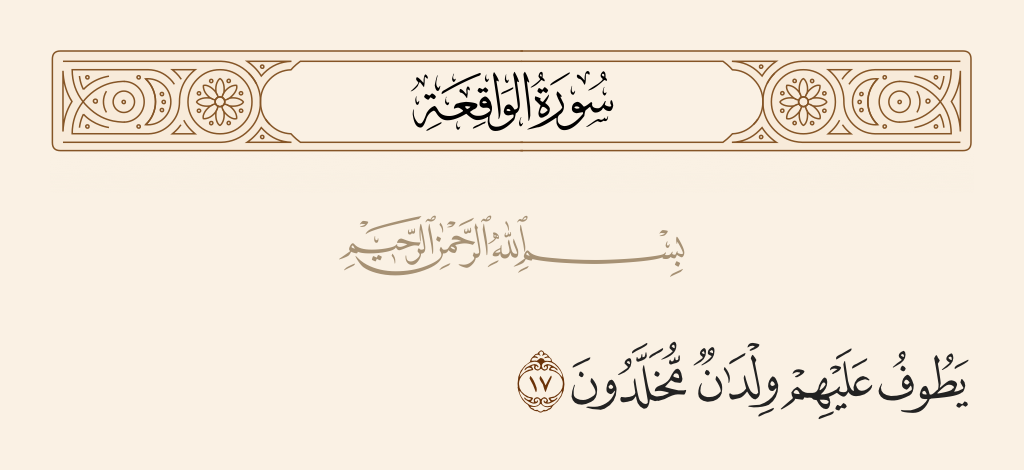 سُورَةُ الوَاقِعَةِ
بِسْمِ ٱللَّهِ ٱلرَّحْمَٰنِ ٱلرَّحِيمِ
يَطُوفُ عَلَيْهِمْ وِلْدَٰنٌ مُّخَلَّدُونَ ١٧